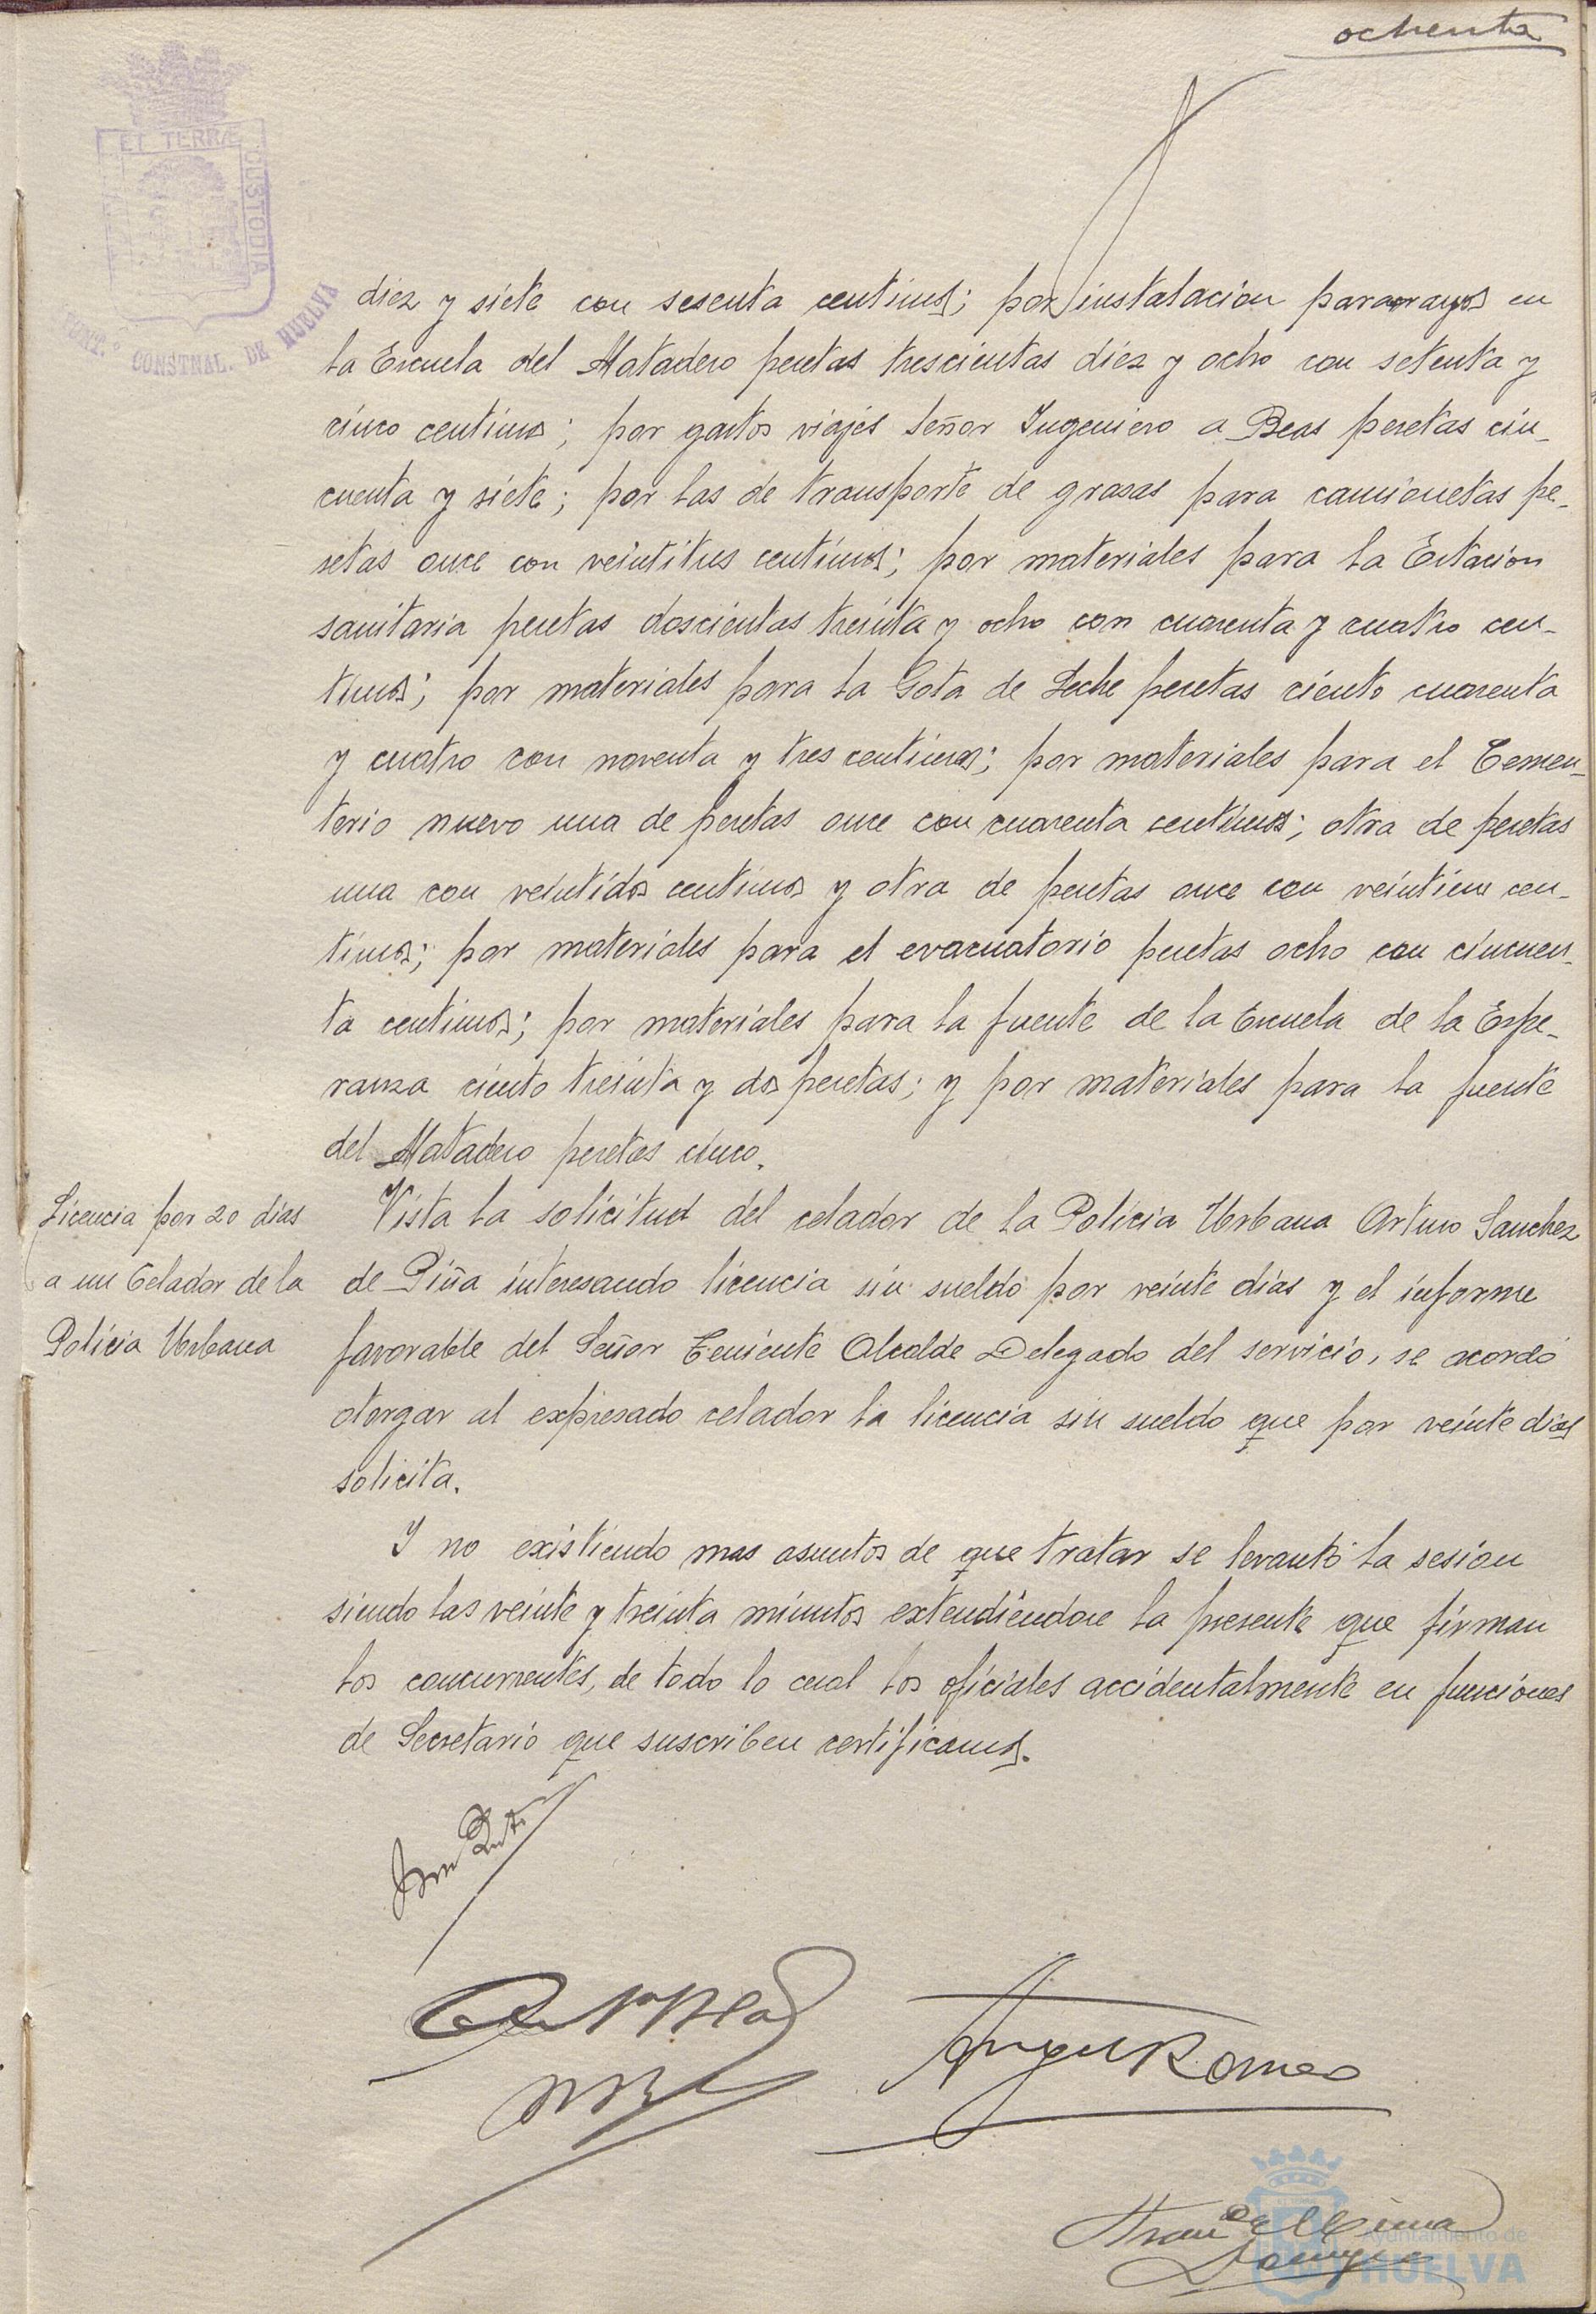 ochenta
ET TERRÆ
CUSTODIA
CONSTNAL. DE HUELVA
diez y siete con sesenta centimos; por instalacion pararrayos en
la Escuela del Matadero pesetas trescientas diez y ocho con setenta y
cinco centimos; por gastos viajes Señor Ingeniero a Beas pesetas cin-
cuenta y siete; por las de transporte de grasas para camionetas pe-
setas once con veintitres centimos; por materiales para la Estacion
sanitaria pesetas doscientas treinta y ocho con cuarenta y cuatro cen-
timos; por materiales para la Gota de Leche pesetas ciento cuarenta
y cuatro con noventa y tres centimos; por materiales para el Cemen-
terio nuevo una de pesetas once con cuarenta centimos; otra de pesetas
una con veintidos centimos y otra de pesetas once con veinticinco cen-
timos; por materiales para el evacuatorio pesetas ocho con cincuen-
ta centimos; por materiales para la fuente de la Escuela de la Espe-
ranza ciento treinta y dos pesetas; y por materiales para la fuente
del Matadero pesetas cinco.
Licencia por 20 dias
a un Celador de la
Policia Urbana
Vista la solicitud del celador de la Policia Urbana Arturo Sanchez
de Piña interesando licencia sin sueldo por veinte dias y el informe
favorable del Señor Teniente Alcalde Delegado del servicio, se acordó
otorgar al expresado celador la licencia sin sueldo que por veinte dias
solicita.
Y no existiendo mas asuntos de que tratar se levantó la sesion
siendo las veinte y treinta minutos extendiéndose la presente que firman
los concurrentes, de todo lo cual los oficiales accidentalmente en funciones
de Secretario que suscriben certificamos.
Angel Romeo
Ayuntamiento de
HUELVA